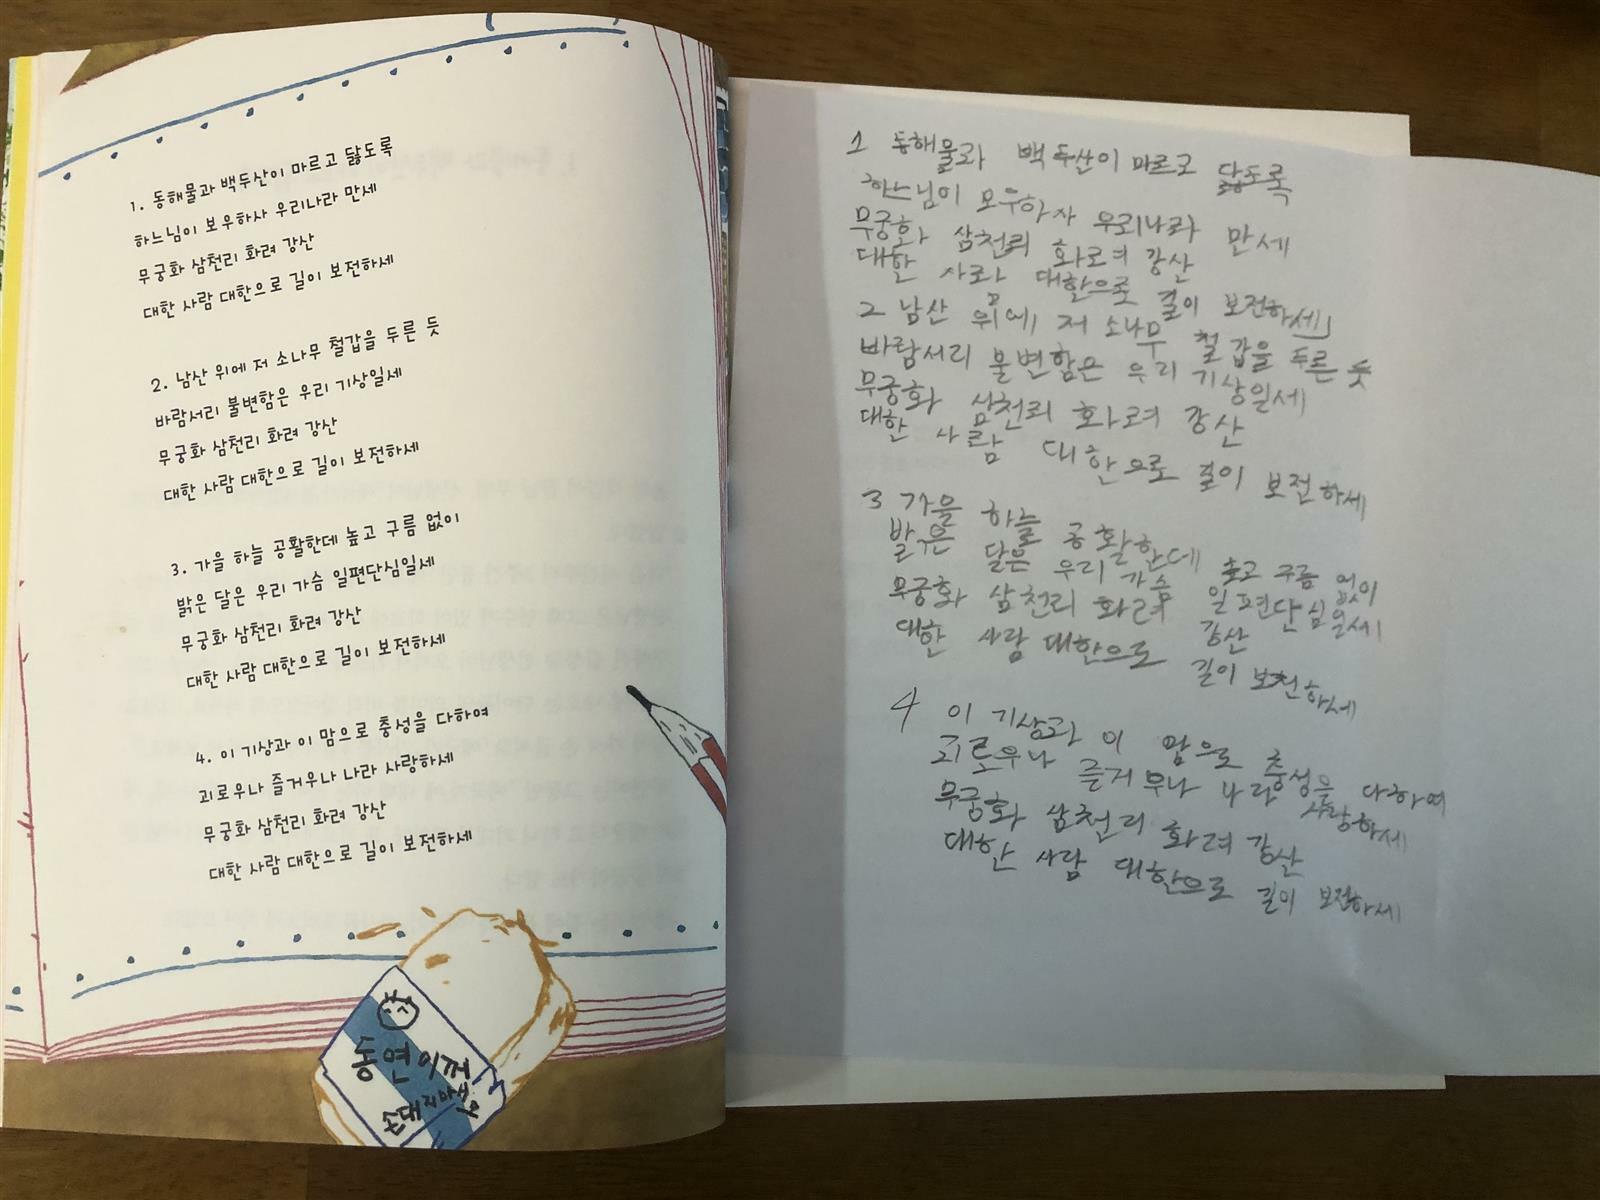 1. 동해물과 백두산이 마르고 닳도록
하느님이 보우하사 우리나라 만세
무궁화 삼천리 화려 강산
대한 사람 대한으로 길이 보전하세
2. 남산 위에 저 소나무 철갑을 두른 듯
바람서리 불변함은 우리 기상일세
무궁화 삼천리 화려 강산
대한 사람 대한으로 길이 보전하세
3. 가을 하늘 공활한데 높고 구름 없이
밝은 달은 우리 가슴 일편단심일세
무궁화 삼천리 화려 강산
대한 사람 대한으로 길이 보전하세
4. 이 기상과 이 맘으로 충성을 다하여
괴로우나 즐거우나 나라 사랑하세
무궁화 삼천리 화려 강산
대한 사람 대한으로 길이 보전하세
동연이꺼
손대지마세요
1 동해물과 백두산이 마르고 닳도록
하느님이 모우하자 우리나라 만세
무궁화 삼천리 화려 강산
대한 사람 대한으로 길이 보전하세
2 남산 위에 저 소나무 철갑을 두른 듯
바람서리 불변함은 우리 기상일세
무궁화 삼천리 화려 강산
대한 사람 대한으로 길이 보전하세
3 가을 하늘 공활한데 구름 없이
달은 우리 가슴 일편단심일세
무궁화 삼천리 화려 강산
대한 사람 대한으로 길이 보전하세
4 이 기상과 이 맘으로 충성을 다하여
괴로우나 즐거우나 나라 사랑하세
무궁화 삼천리 화려 강산
대한 사람 대한으로 길이 보전하세